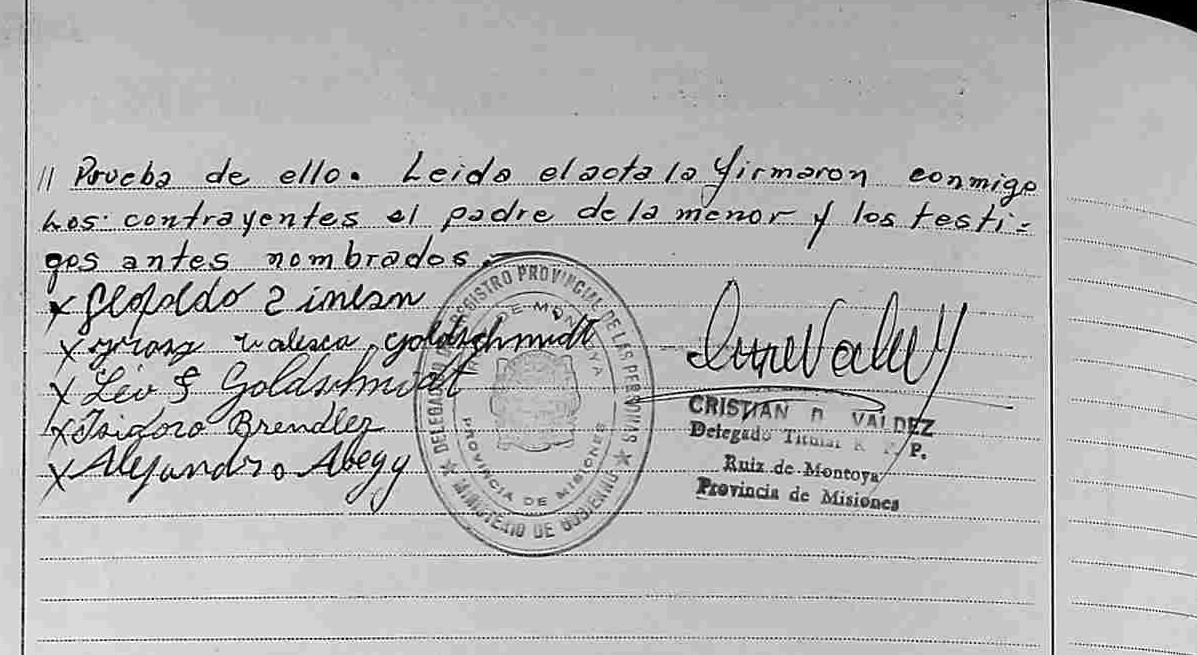 // Prueba de ello. Leida el acta la firmaron conmigo
Los contrayentes el padre de la menor y los testi=
gos antes nombrados.
x Leopoldo Zinesn
x valesca goldschmidt
x Leo S Goldschmidt
x Isidoro Brendler
x Alejandro Abegg
DELEGACION REGISTRO PROVINCIAL DE LAS PERSONAS
MINISTERIO DE GOBIERNO
DE MONTOYA
PROVINCIA DE MISIONES
CRISTIAN D. VALDEZ
Delegado Titular R. P. P.
Ruiz de Montoya
Provincia de Misiones